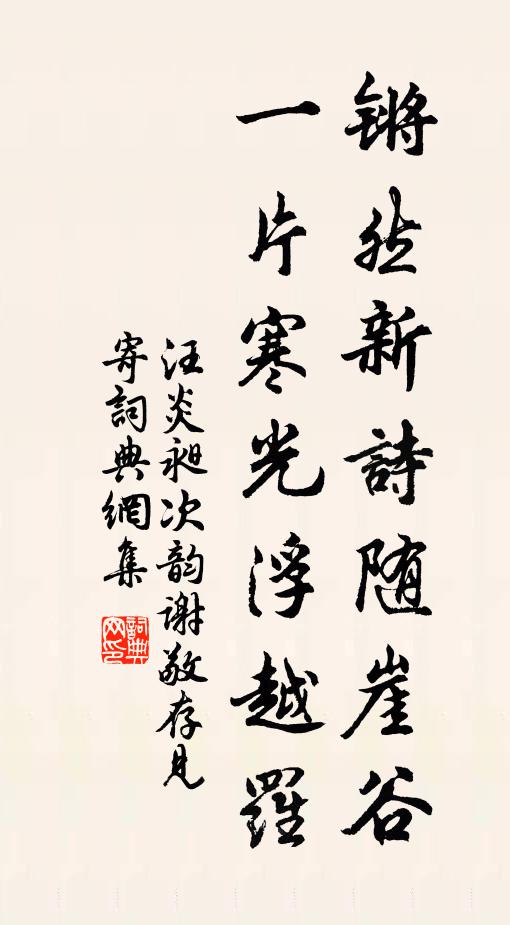 锵然新詩随崖谷
一片寒光浮越羅
汪炎昶次韵谢敬存見
寄詞典網集
詞典
网印